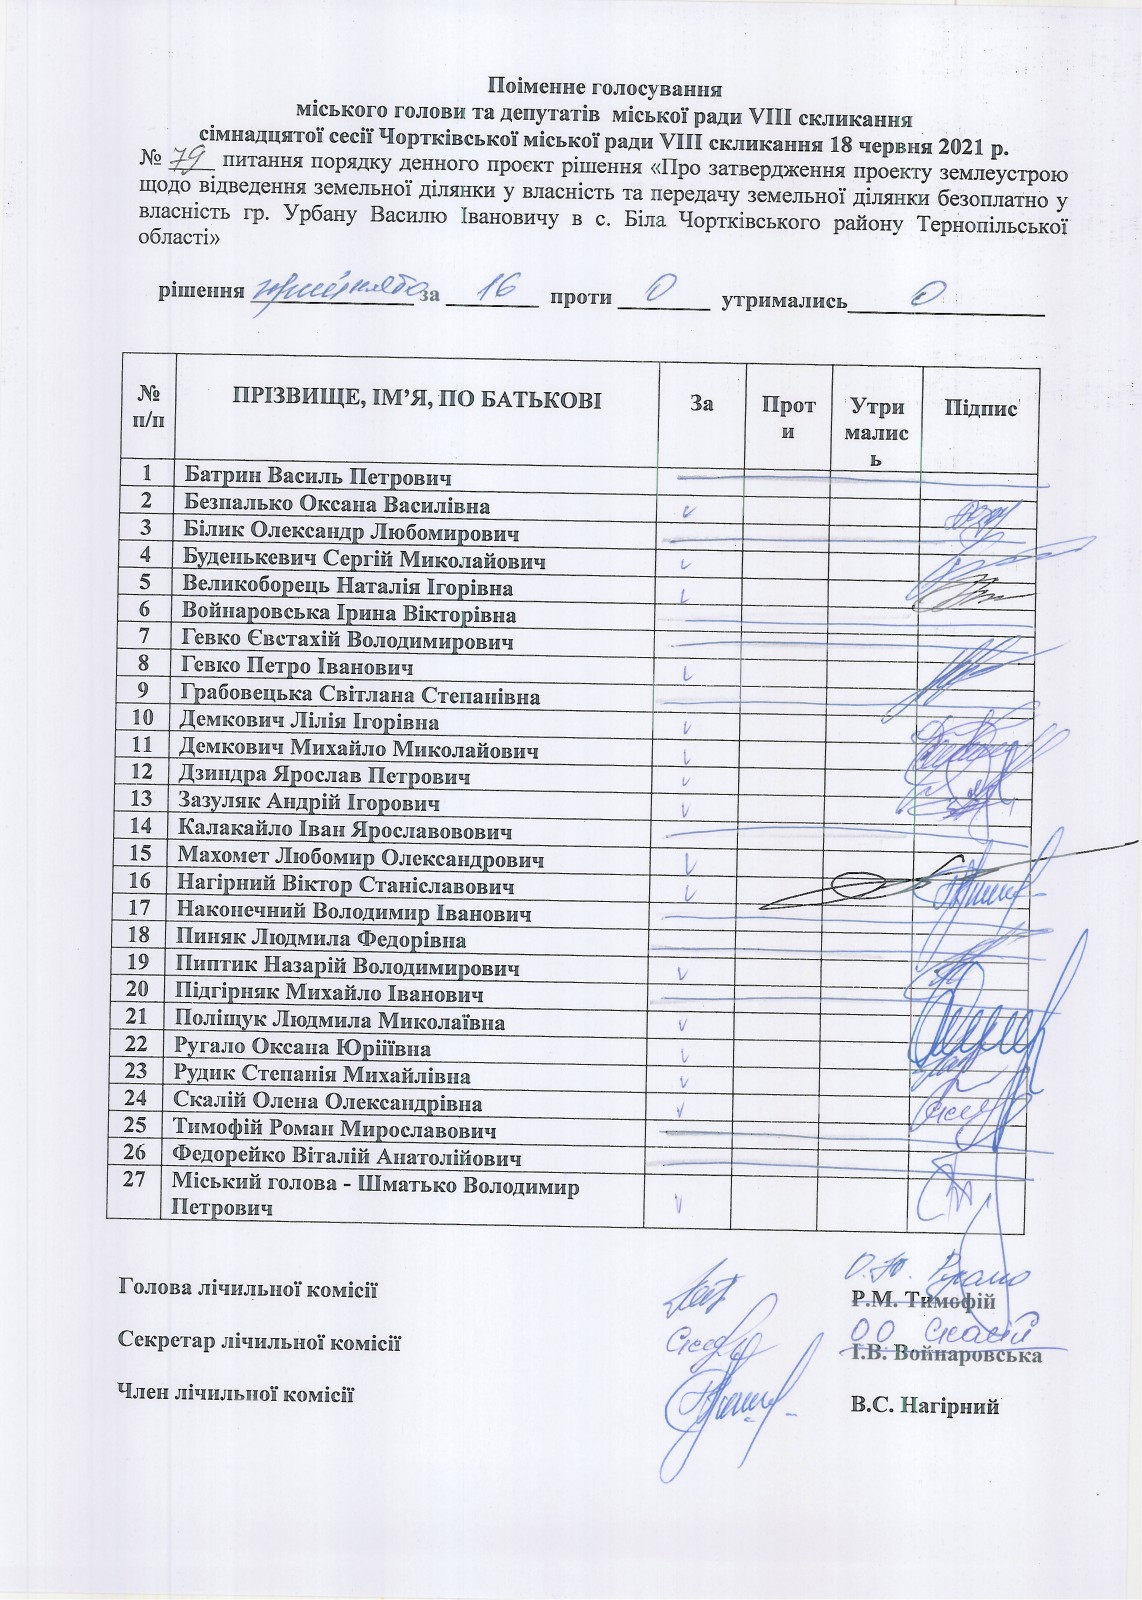 Поіменне голосування
міського голови та депутатів міської ради VIII скликання
сімнадцятої сесії Чортківської міської ради VIII скликання 18 червня 2021 р.
№ 79 питання порядку денного проєкт рішення «Про затвердження проекту землеустрою
щодо відведення земельної ділянки у власність та передачу земельної ділянки безоплатно у
власність гр. Урбану Василю Івановичу в с. Біла Чортківського району Тернопільської
області»
рішення прийнято за 16 проти 0 утримались 0
№ п/п ПРІЗВИЩЕ, ІМ’Я, ПО БАТЬКОВІ За Прот и Утри малис ь Підпис
1 Батрин Василь Петрович
2 Безпалько Оксана Василівна v
3 Білик Олександр Любомирович
4 Буденькевич Сергій Миколайович v
5 Великоборець Наталія Ігорівна v
6 Войнаровська Ірина Вікторівна
7 Гевко Євстахій Володимирович
8 Гевко Петро Іванович v
9 Грабовецька Світлана Степанівна
10 Демкович Лілія Ігорівна v
11 Демкович Михайло Миколайович v
12 Дзиндра Ярослав Петрович v
13 Зазуляк Андрій Ігорович v
14 Калакайло Іван Ярославовович
15 Махомет Любомир Олександрович v
16 Нагірний Віктор Станіславович v
17 Наконечний Володимир Іванович
18 Пиняк Людмила Федорівна
19 Пиптик Назарій Володимирович v
20 Підгірняк Михайло Іванович
21 Поліщук Людмила Миколаївна v
22 Ругало Оксана Юріїівна v
23 Рудик Степанія Михайлівна v
24 Скалій Олена Олександрівна v
25 Тимофій Роман Мирославович
26 Федорейко Віталій Анатолійович
27 Міський голова - Шматько Володимир v
Петрович
О.Ю. Ругало
Голова лічильної комісії Р.М. Тимофій
О.О. Скалій
Секретар лічильної комісії І.В. Войнаровська
Член лічильної комісії В.С. Нагірний